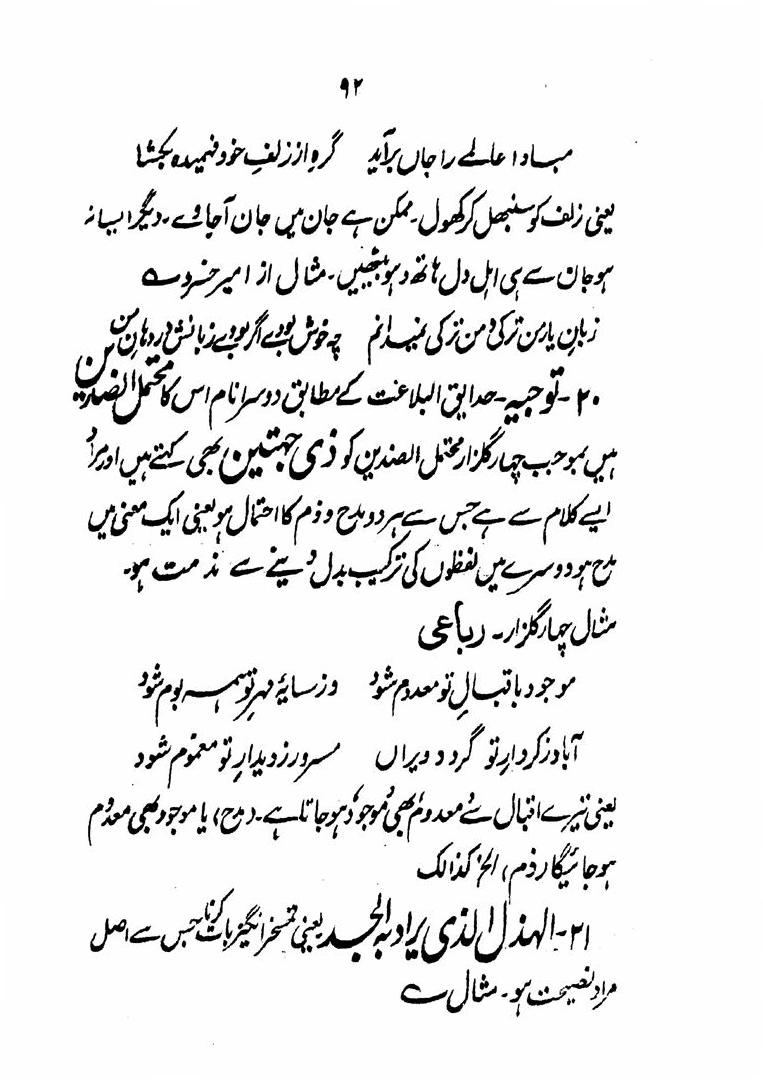 ۹۲
مبادا عالمے را جاں برآید گرہ از زلفِ خود فہمیدہ بکشا
یعنی زلف کو سنبھل کر کھول۔ ممکن ہے جان میں جان آجاوے۔ دیگر ایسا نہ
ہو جان سے ہی اہل دل ہاتھ دھو بیٹھیں۔ مثال از امیر خسرو ؎
زبانِ یار من ترکی و من ترکی نمیدانم چہ خوش بودے اگر بودے زبانش در دہانِ من
۲۰۔ توجیہ۔ حدایق البلاغت کے مطابق دوسرا نام اس کا محتمل الضدین
ہیں بموجب چہار گلزار محتمل الضدین کو ذی جہتین بھی کہتے ہیں اور مراد
ایسے کلام سے ہے جس سے ہر دو مدح و ذم کا احتمال ہو یعنی ایک معنی میں
مدح ہو دوسرے میں لفظوں کی ترکیب بدل دینے سے مذمت ہو۔
مثال چہار گلزار۔ رباعی
موجود باقبالِ تو معدوم شود وز سایۂ مہرِ تو ہمہ بوم شود
آباد ز کردارِ تو گردد ویراں مسرور ز دیدارِ تو مغموم شود
یعنی تیرے اقبال سے معدوم بھی موجود ہو جاتا ہے۔ (مدح) یا موجود بھی معدوم
ہو جائیگا (ذم) الخ کذالک
۲۱۔ الہذل الذی یراد بہ الجد یعنی تمسخر انگیز بات کرنا جس سے اصل
مراد نصیحت ہو۔ مثال ؎